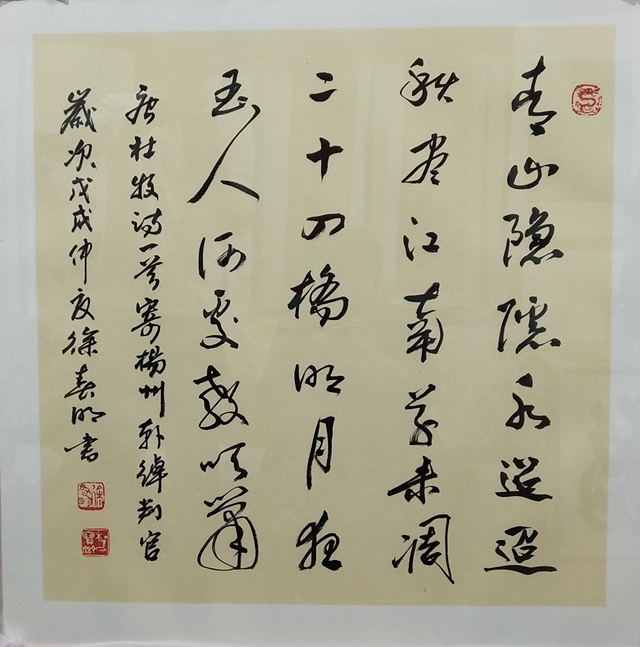 青山隐隐水迢迢
秋尽江南草未凋
二十四橋明月夜
玉人何处教吹箫
唐杜牧诗一首寄楊州韩绰判官
歲次戊戌仲夏徐春明书